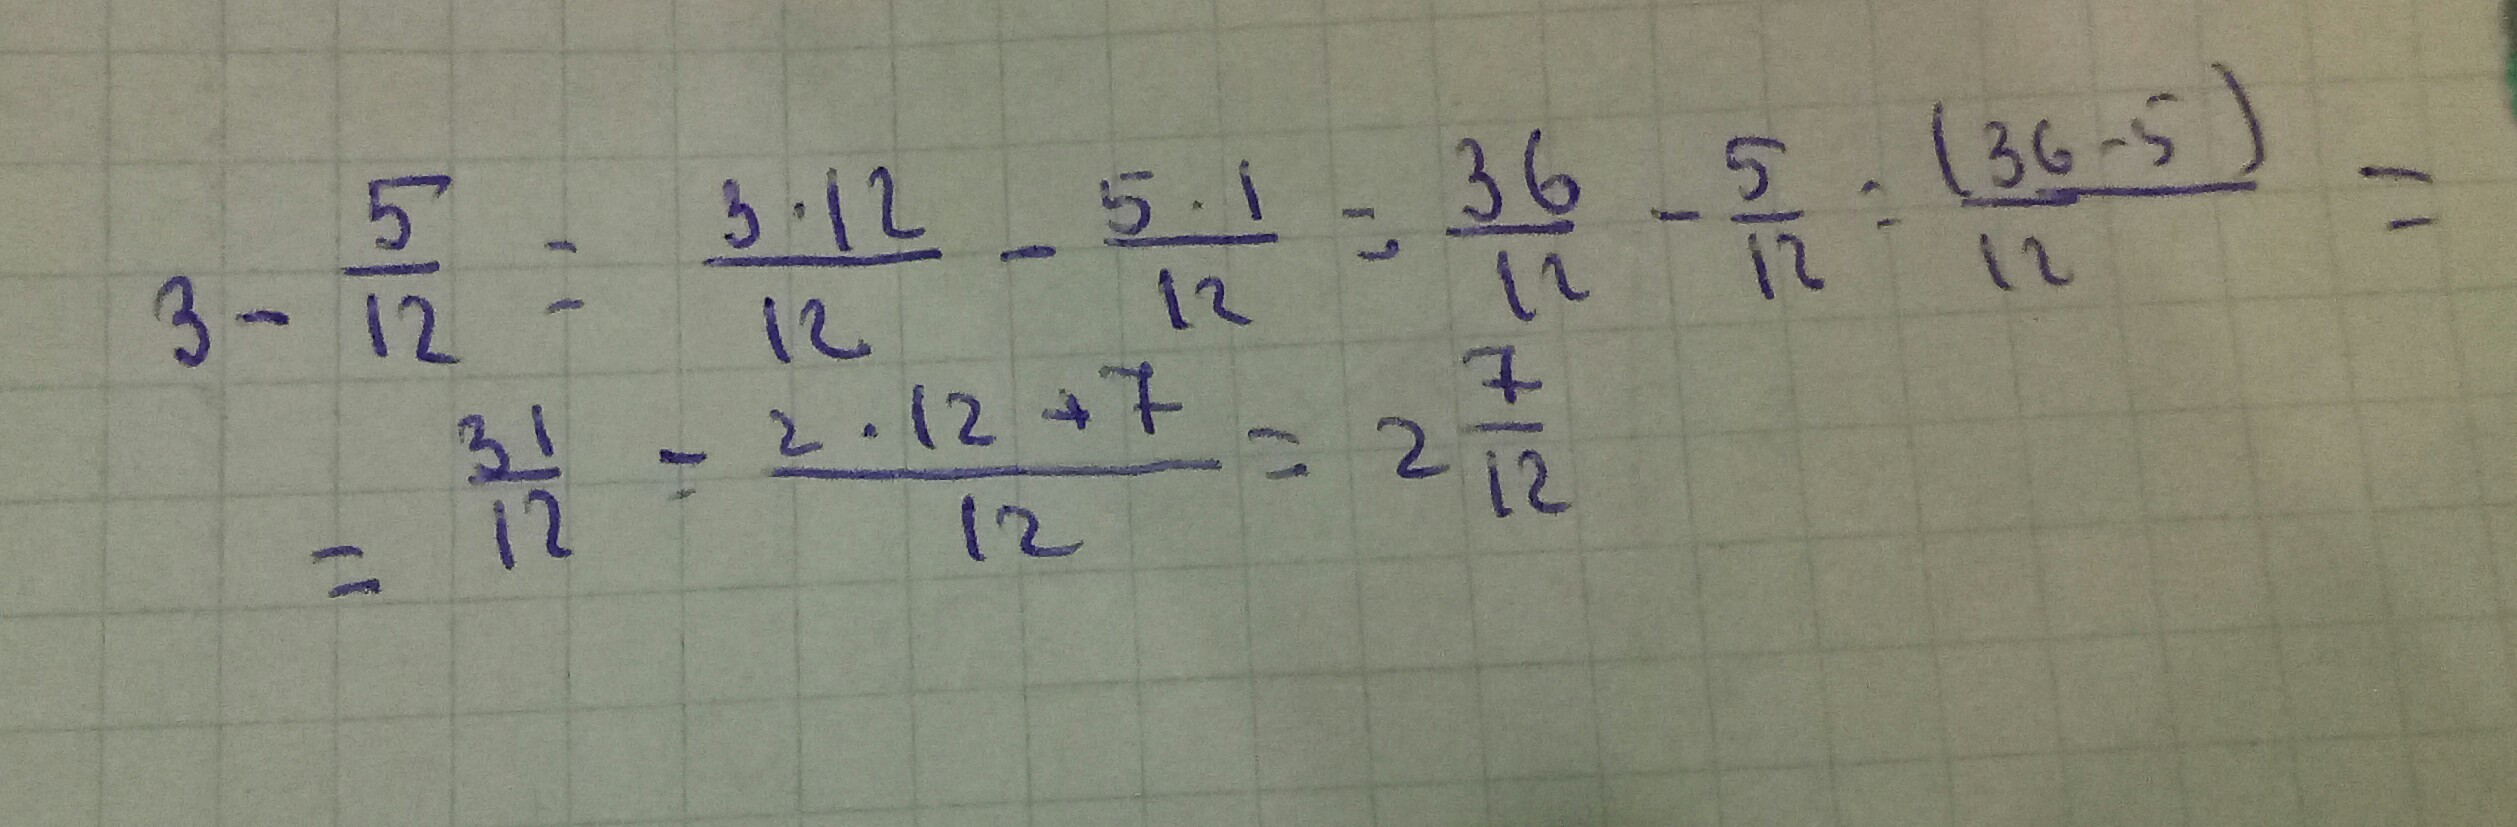 3 - 5/12 = 3·12/12 - 5·1/12 = 36/12 - 5/12 = (36-5)/12 =
= 31/12 = 2·12+7/12 = 2 7/12